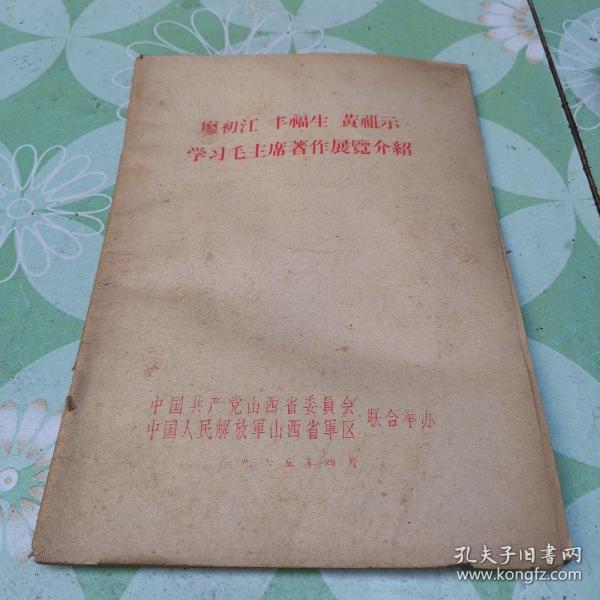 廖初江 丰福生 黃祖示
学习毛主席著作展覽介紹
中国共产党山西省委員会
中国人民解放軍山西省軍区 联合举办
一九六五年四月
孔夫子旧书网
www.kongfz.com